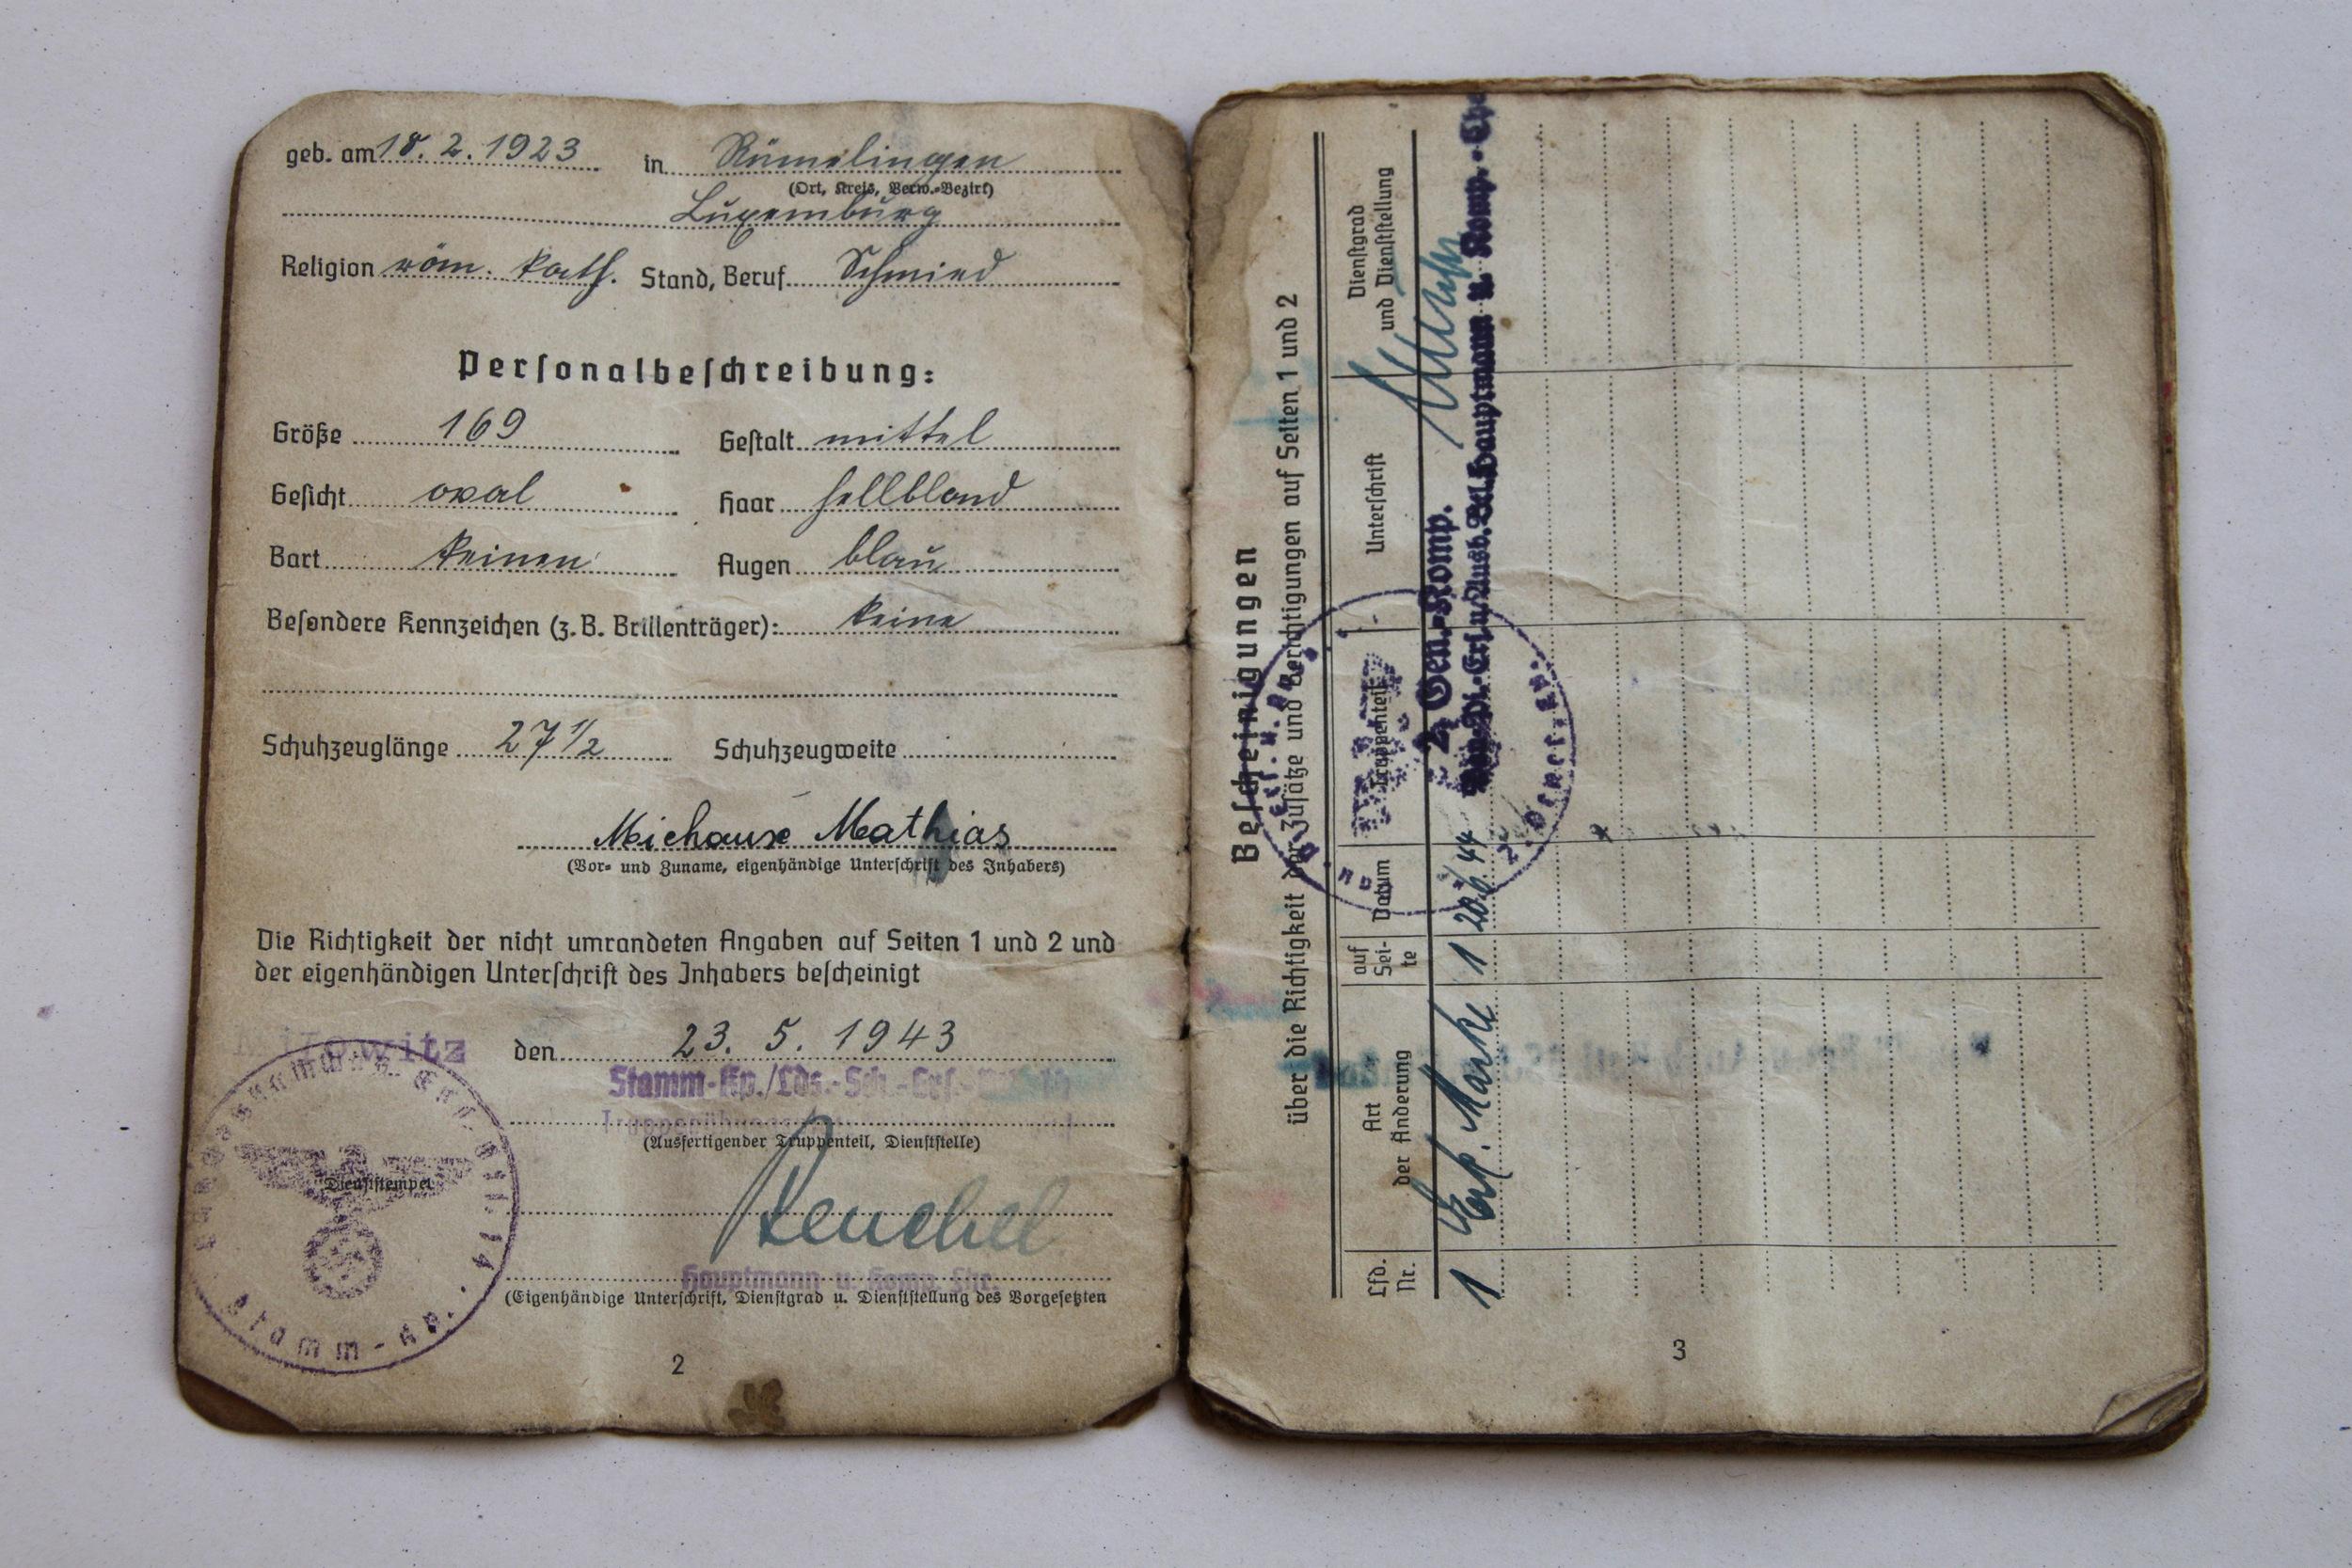 geb. am 18. 2. 1923 in Rümelingen
(Ort, Kreis, Verw.-Bezirk)
Luxemburg
Religion röm. kath. Stand, Beruf Schmied
Personalbeschreibung:
Größe 169 Gestalt mittel
Gesicht oval Haar hellblond
Bart keinen Augen blau
Besondere Kennzeichen (z. B. Brillenträger): keine
Schuhzeuglänge 27 1/2 Schuhzeugweite
Mathias
(Vor- und Zuname, eigenhändige Unterschrift des Inhabers)
Die Richtigkeit der nicht umrandeten Angaben auf Seiten 1 und 2 und
der eigenhändigen Unterschrift des Inhabers bescheinigt
den 23. 5. 1943
Stamm-Kp./Lds.-Sch.-Ers.-
(Ausfertigender Truppenteil, Dienststelle)
Dienststempel
Stamm-Kp.
Hauptmann u. Komp.
(Eigenhändige Unterschrift, Dienstgrad u. Dienststellung des Vorgesetzten
2
Bescheinigungen
über die Richtigkeit der Zusätze und Berichtigungen auf Seiten 1 und 2
Lfd. Nr. Art der Änderung auf Sei- te Datum Truppenteil Unterschrift Dienstgrad und Dienststellung
1 Erk. Marke 1 20.6.44 2. Gen.-Komp.
Hauptmann u. Komp.-
3